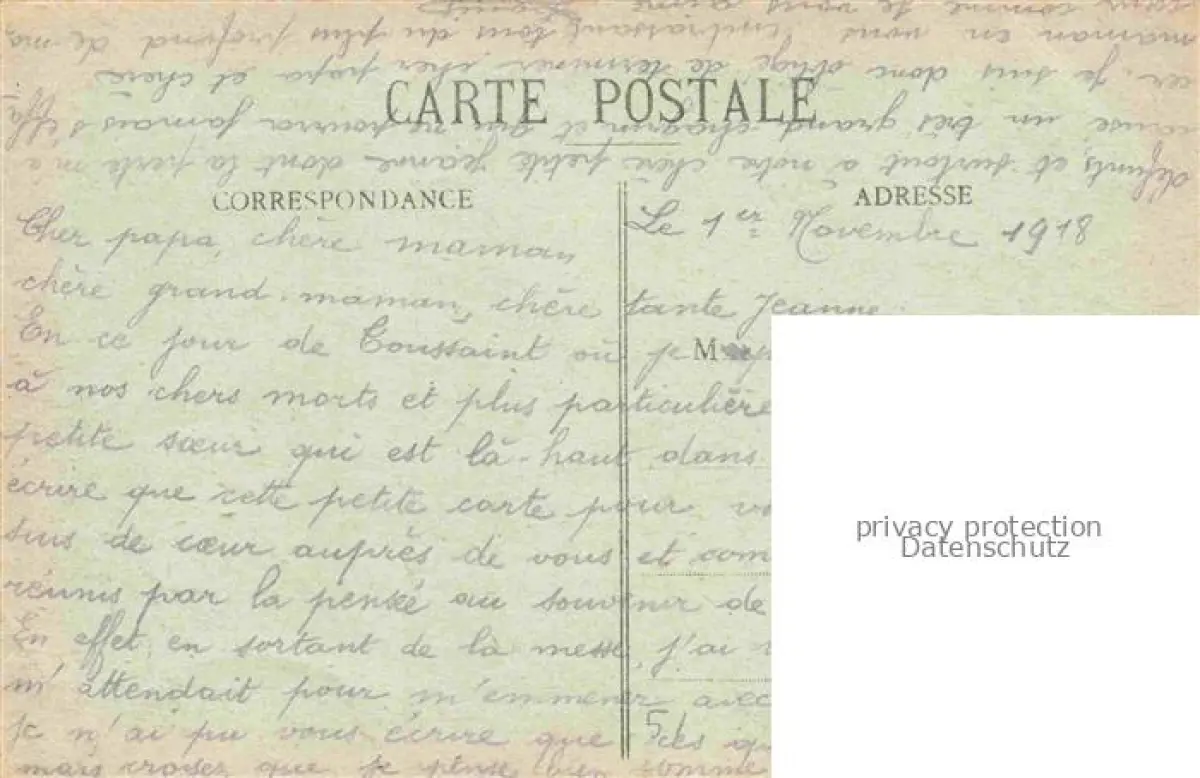 CARTE POSTALE
CORRESPONDANCE
ADRESSE
Le 1er Novembre 1918
Cher papa, chère maman,
chère grand-maman, chère tante Jeanne.
En ce jour de Toussaint où je
M
à nos chers morts et plus particulière
petite sœur qui est là-haut dans
écrire que cette petite carte pour
suis de cœur auprès de vous et com
réunis par la pensée au souvenir de
En effet, en sortant de la messe, j'ai
m'attendait pour m'emmener avec
je n'ai pu vous écrire que
mais croyez que je pense bien comme
défunts, et surtout à notre chère petite Jeanne dont la perte m'a
causé un très grand chagrin et qui ne pourra jamais s'effa
cer. Je suis donc obligé de terminer cher papa et chère
maman en vous embrassant tous du plus profond de mo
comme je vous aime
privacy protection
Datenschutz